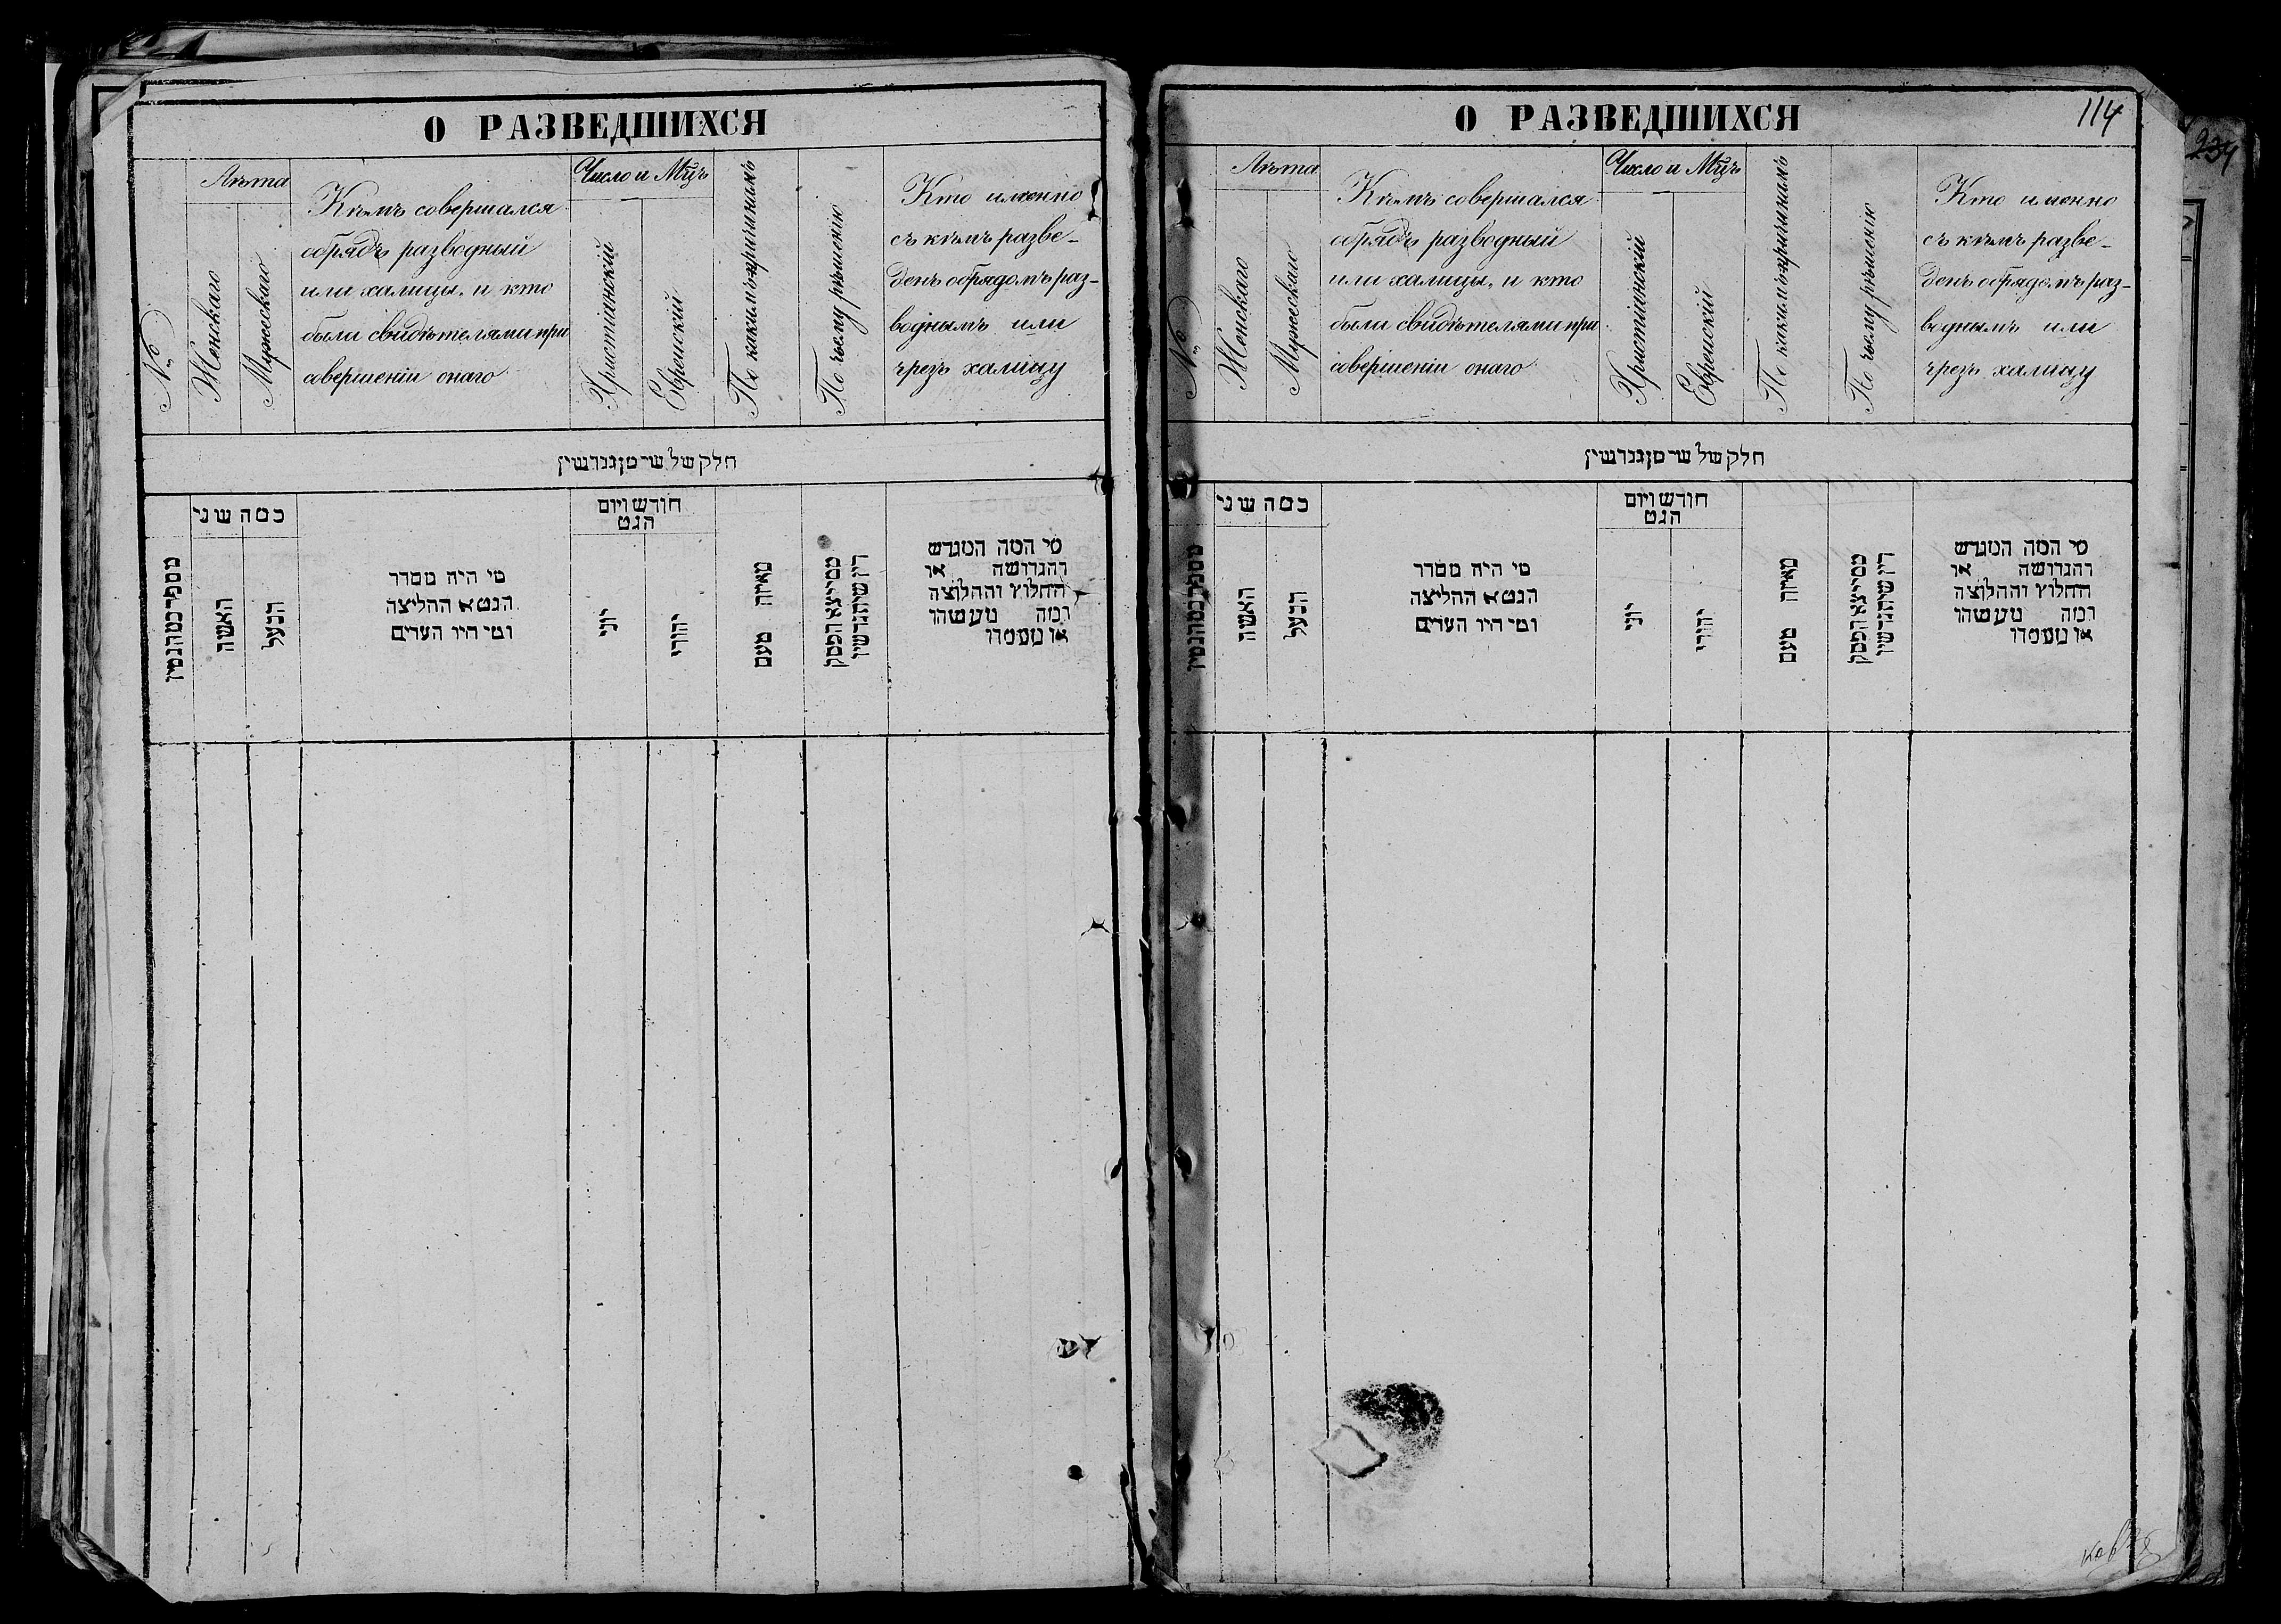 О РАЗВЕДШИХСЯ
№
Лѣта
Женскаго
Мужескаго
Кѣмъ совершался
обрядъ разводный
или халицы, и кто
были свидѣтелями при
совершеніи онаго
Число и Мц̃ъ
Христіянскій
Еврейскій
По какимъ причинамъ
По чьему рѣшенію
Кто именно
съ кѣмъ разве-
денъ обрядомъ раз-
воднымъ или
чрезъ халицу
חלק שלישי מן גנרשין
מספר כמה גטין
כמה שני
האשה
הבעל
מי היה מסדר
הגט א החליצה
ומי היו העדים
חודש ויום
הגט
יוני
יהודי
מאיזה טעם
ממי יצא הפסק
דין שיתגרשו
מי המה המגרש
והגרושה או
החלוץ והחלוצה
ומה מעשהו
או מעמדו
О РАЗВЕДШИХСЯ
114
234
№
Лѣта
Женскаго
Мужескаго
Кѣмъ совершался
обрядъ разводный
или халицы, и кто
были свидѣтелями при
совершеніи онаго
Число и Мц̃ъ
Христіянскій
Еврейскій
По какимъ причинамъ
По чьему рѣшенію
Кто именно
съ кѣмъ разве-
денъ обрядомъ раз-
воднымъ или
чрезъ халицу
חלק שלישי מן גנרשין
מספר כמה גטין
כמה שני
האשה
הבעל
מי היה מסדר
הגט א החליצה
ומי היו העדים
חודש ויום
הגט
יוני
יהודי
מאיזה טעם
ממי יצא הפסק
דין שיתגרשו
מי המה המגרש
והגרושה או
החלוץ והחלוצה
ומה מעשהו
או מעמדו